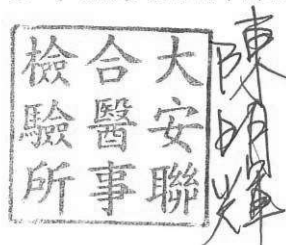 大安聯
合醫事
檢驗所
陳明輝